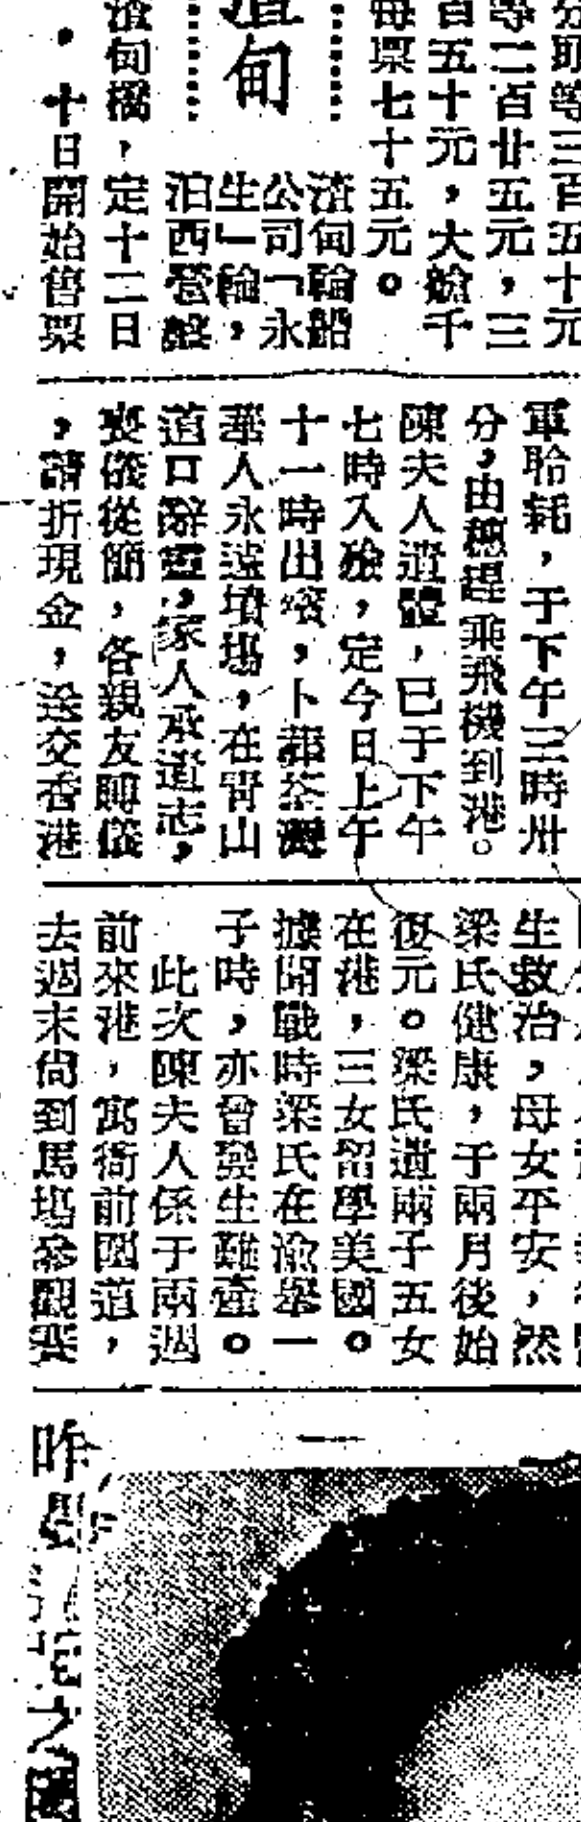 等三百五十元
等二百廿五元，三
百五十元，大艙千
每票七十五元。
渣甸
渣甸輪船
公司「永
生」輪，
泊西營盤
渣甸橋，定十二日
十日開始售票
軍聆耗，于下午三時卅
分，由穗趕乘飛機到港。
陳夫人遺體，已于下午
七時入殮，定今日上午
十一時出殯，卜葬荃灣
華人永遠墳場，在青山
道口辭靈，家人承遺志，
喪儀從簡，各親友賻儀
，請折現金，送交香港
生救治，母女平安，然
梁氏健康，于兩月後始
復元。梁氏遺兩子五女
在港，三女留學美國。
據開戰時梁氏在渝舉一
子時，亦曾發生難產。
此次陳夫人係于兩週
前來港，寓衙前圍道，
去週末尚到馬場參觀賽
昨
之